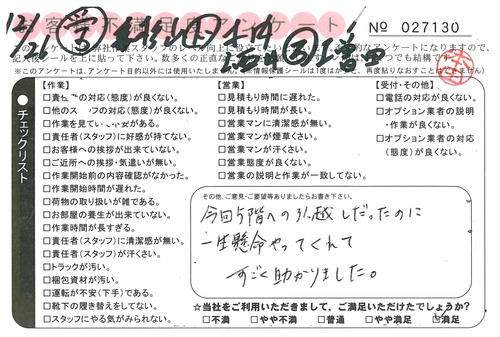 お客様不満足度アンケート
№ 027130
12/26
※このアンケートは、アンケート目的以外には使用いたしません。
チェックリスト
【作業】
□責任 の対応(態度)が良くない。
□他のス の対応(態度)が良くない。
□作業を見てい がある。
□責任者(スタッフ)に好感が持てない。
□お客様への挨拶が出来ていない。
□ご近所への挨拶・気遣いが無い。
□作業開始前の内容確認がなかった。
□作業開始時間が遅れた。
□荷物の取り扱いが雑である。
□お部屋の養生が出来ていない。
□作業時間が長すぎる。
□責任者(スタッフ)に清潔感が無い。
□責任者(スタッフ)が汗くさい。
□トラックが汚い。
□梱包資材が汚い。
□運転が不安(下手)である。
□靴下の履き替えをしてない。
□スタッフにやる気がみられない。
【営業】
□見積もり時間に遅れた。
□見積もり時間が長い。
□営業マンに清潔感が無い。
□営業マンが煙草くさい。
□営業マンが汗くさい。
□営業態度が良くない。
□営業の説明と作業が一致してない。
【受付・その他】
□電話の対応が良くない。
□オプション業者の説明・作業が良くない。
□オプション業者の対応(態度)が良くない。
その他、ご意見・ご要望等ありましたらお書き下さい。
今回5階への引越しだったのに
一生懸命やってくれて
すごく助かりました。
☆当社をご利用いただきまして、ご満足いただけたでしょうか?
□不満 □やや不満 □普通 □やや満足 □満足